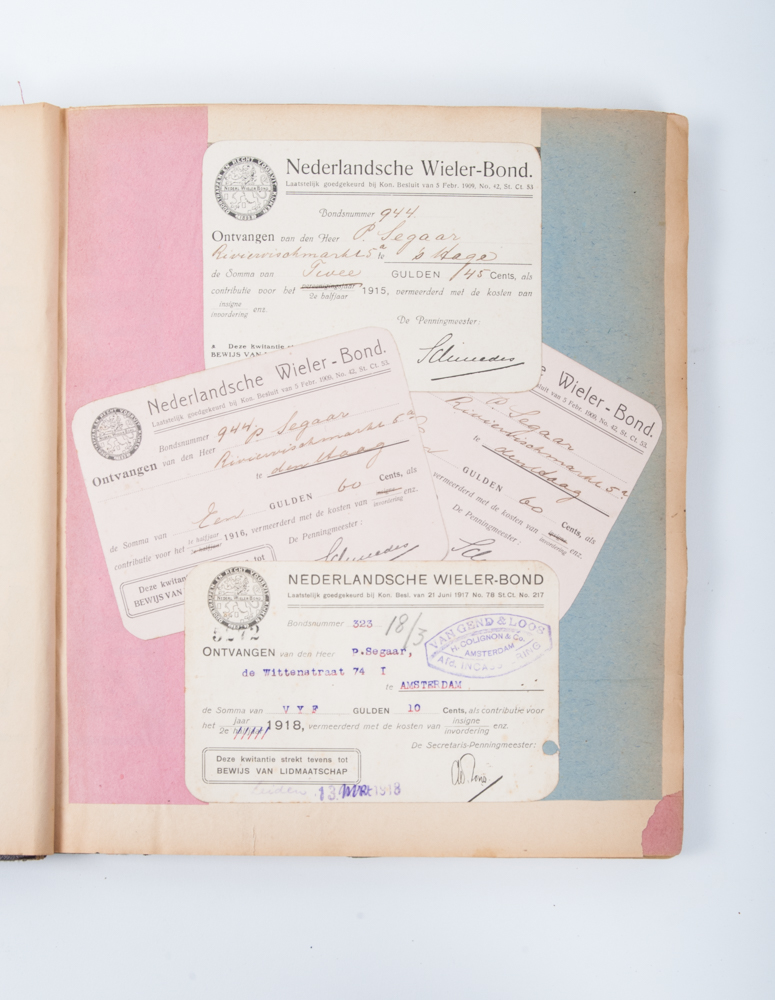 Nederlandsche Wieler-Bond.
Laatstelijk goedgekeurd bij Kon. Besluit van 5 Febr. 1909, No. 42, St. Ct. 53
Bondsnummer 944
Ontvangen van den Heer P. Segaar
Riviervischmarkt 5a te 's Hage
de Somma van Twee GULDEN /45 Cents, als
contributie voor het 2e halfjaar 1915, vermeerderd met de kosten van
insigne
invordering enz.
De Penningmeester:
Deze kwitantie
BEWIJS VAN
Nederlandsche Wieler-Bond.
Laatstelijk goedgekeurd bij Kon. Besluit van 5 Febr. 1909, No. 42, St. Ct. 53.
Bondsnummer 944 P. Segaar
Ontvangen van den Heer Riviervischmarkt 5a
te den Haag
de Somma van Een GULDEN 60 Cents, als
contributie voor het 1e halfjaar 1916, vermeerderd met de kosten van insigne enz.
invordering
De Penningmeester:
Deze kwitan tot
BEWIJS VAN
Wieler-Bond.
sluit van 5 Febr. 1909, No. 42, St. Ct. 53.
P. Segaar
Riviervischmarkt 5a
te den Haag
GULDEN 60 Cents, als
vermeerderd met de kosten van insigne enz.
invordering
De Penningmeester:
NEDERLANDSCHE WIELER-BOND
Laatstelijk goedgekeurd bij Kon. Besl. van 21 Juni 1917 No. 78 St.Ct. No. 217
Bondsnummer 323
18/3
5272
VAN GEND & LOOS
H. COLIGNON & Co.
AMSTERDAM
ONTVANGEN van den Heer P.Segaar,
de Wittenstraat 74 I
te AMSTERDAM
de Somma van VYF GULDEN 10 Cents, als contributie voor
het jaar
2e halfjaar 1918, vermeerderd met de kosten van insigne
invordering enz.
De Secretaris-Penningmeester:
Deze kwitantie strekt tevens tot
BEWIJS VAN LIDMAATSCHAP
Leiden 13 MRT 1918